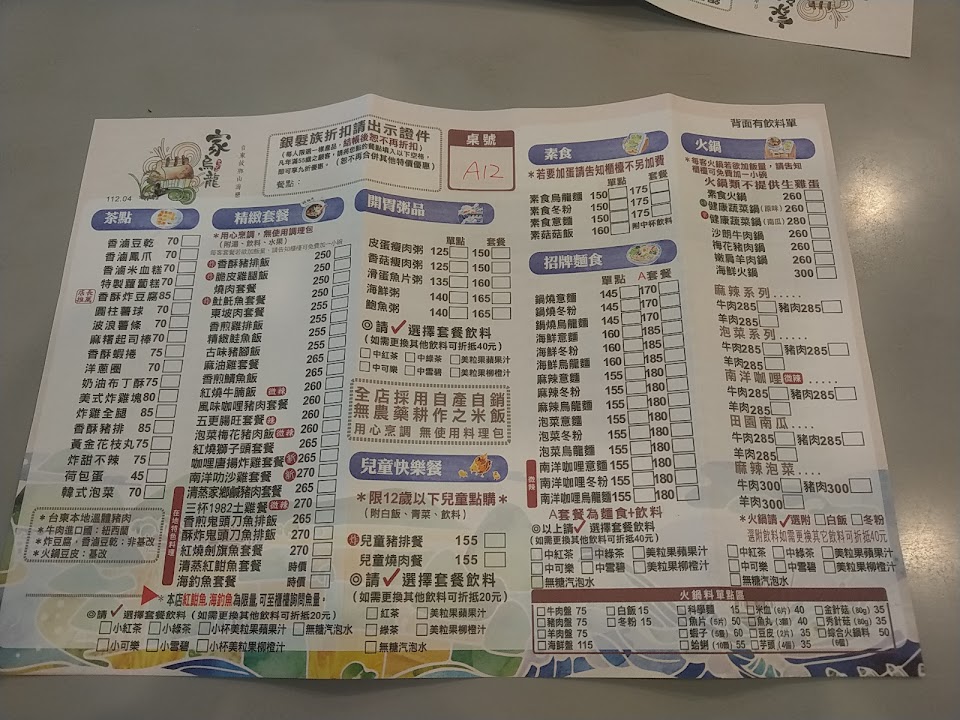 家烏龍
112.04
銀髮族折扣請出示證件
(每人限選一樣產品，結帳後恕不再折扣)
凡年滿55歲之顧客，請將您點的餐點填入以下空格，
即可享九折優惠。(恕不再合併其他特價優惠)
餐點：
桌號
A12
背面有飲料單
茶點
香滷豆乾 70
香滷鳳爪 70
香滷米血糕 70
特製蘿蔔糕 70
店長推薦 香酥炸豆腐 85
圓柱薯球 70
波浪薯條 70
麻糬起司捧 70
香酥蝦捲 75
洋蔥圈 70
奶油布丁酥 75
美式炸雞塊 80
炸雞全腿 85
香酥豬排 80
黃金花枝丸 75
炸甜不辣 75
荷包蛋 45
韓式泡菜 70
＊台東本地溫體豬肉
＊牛肉進口國：紐西蘭
＊炸豆腐，香滷豆乾：非基改
＊火鍋豆皮：基改
精緻套餐
＊用心烹調，無使用調理包
(附湯、飲料、水果)
香酥豬排飯 250
脆皮雞腿飯 250
燒肉套餐 250
炸魠魚套餐 250
東坡肉套餐 250
香煎雞排飯 250
精緻鮭魚飯 250
古味豬腳飯 250
麻油雞套餐 265
香煎鯖魚飯 265
紅燒牛腩飯 微辣 260
風味咖哩豬肉套餐 260
五更腸旺套餐 辣 260
泡菜梅花豬肉飯 微辣 260
紅燒獅子頭套餐 265
咖哩唐揚炸雞套餐 新 265
南洋叻沙雞套餐 新 270
清蒸家鄉鹹豬肉套餐 260
在地特色料理
三杯1982土雞套餐 微辣 270
香煎鬼頭刀魚排飯 265
酥炸鬼頭刀魚排飯 265
紅燒劍旗魚套餐 270
清蒸紅魽魚套餐 時價
海釣魚套餐 時價
＊本店紅魽魚,海釣魚為限量,可至櫃檯詢問魚量。
◎請✓選擇套餐飲料 (如需更換其他飲料可折抵20元)
小紅茶 小綠茶 小杯美粒果蘋果汁 無糖汽泡水
小可樂 小雪碧 小杯美粒果柳橙汁
開胃粥品
單點 套餐
皮蛋瘦肉粥 125 150
香菇瘦肉粥 125 150
滑蛋魚片粥 135 160
海鮮粥 140 165
鮑魚粥 140 165
◎請✓選擇套餐飲料
(如需更換其他飲料可折抵40元)
中紅茶 中綠茶 美粒果蘋果汁
中可樂 中雪碧 美粒果柳橙汁
全店採用自產自銷
無農藥耕作之米飯
用心烹調 無使用料理包
兒童快樂餐
＊限12歲以下兒童點購＊
(附白飯、青菜、飲料)
炸 兒童豬排餐 155
兒童燒肉餐 155
◎請✓選擇套餐飲料
(如需更換其他飲料可折抵20元)
紅茶 美粒果蘋果汁
綠茶 美粒果柳橙汁
無糖汽泡水
素食
＊若要加蛋請告知櫃檯不另加費
單點 套餐
素食烏龍麵 150 175
素食冬粉 150 175
素食意麵 150 175
素菇菇飯 150 附中杯飲料
招牌麵食
單點 A套餐
鍋燒意麵 145 170
鍋燒冬粉 145 170
鍋燒烏龍麵 145 170
海鮮意麵 155 180
海鮮冬粉 155 180
海鮮烏龍麵 155 180
麻辣意麵 155 180
麻辣冬粉 155 180
麻辣烏龍麵 155 180
泡菜意麵 155 180
泡菜冬粉 155 180
泡菜烏龍麵 155 180
微辣
南洋咖哩意麵 155 180
南洋咖哩冬粉 155 180
南洋咖哩烏龍麵 155 180
A套餐為麵食+飲料
◎以上請✓選擇套餐飲料
(如需更換其他飲料可折抵40元)
中紅茶 中綠茶 美粒果蘋果汁
中可樂 中雪碧 美粒果柳橙汁
無糖汽泡水
火鍋
每客火鍋若欲加飯量，請告知
櫃檯可免費加一小碗
火鍋類不提供生雞蛋
素食火鍋 260
健康蔬菜鍋(原味) 260
健康蔬菜鍋(南瓜) 280
沙朗牛肉鍋 260
梅花豬肉鍋 260
嫩肩羊肉鍋 260
海鮮火鍋 300
麻辣系列.....
牛肉285 豬肉285
羊肉285
泡菜系列.....
牛肉285 豬肉285
羊肉285
南洋咖哩 微辣 .....
牛肉285 豬肉285
羊肉285
田園南瓜.....
牛肉285 豬肉285
羊肉285
麻辣泡菜.....
牛肉300 豬肉300
羊肉300
＊火鍋請✓選附 白飯 冬粉
選附飲料如需更換其它飲料可折抵40元
中紅茶 中綠茶 美粒果蘋果汁
中可樂 中雪碧 美粒果柳橙汁
無糖汽泡水
火鍋料單點區
牛肉盤 75 白飯 15 科學麵 15 米血(6片) 40 金針菇(80g) 35
豬肉盤 75 冬粉 15 魚片(5片) 50 魚丸(3顆) 40 秀針菇(80g) 35
羊肉盤 75 蝦子(6隻) 60 豆皮(2片) 35 綜合火鍋料 50
海鮮盤 115 蛤蜊(10顆) 55 芋頭(4個) 35 (6個)